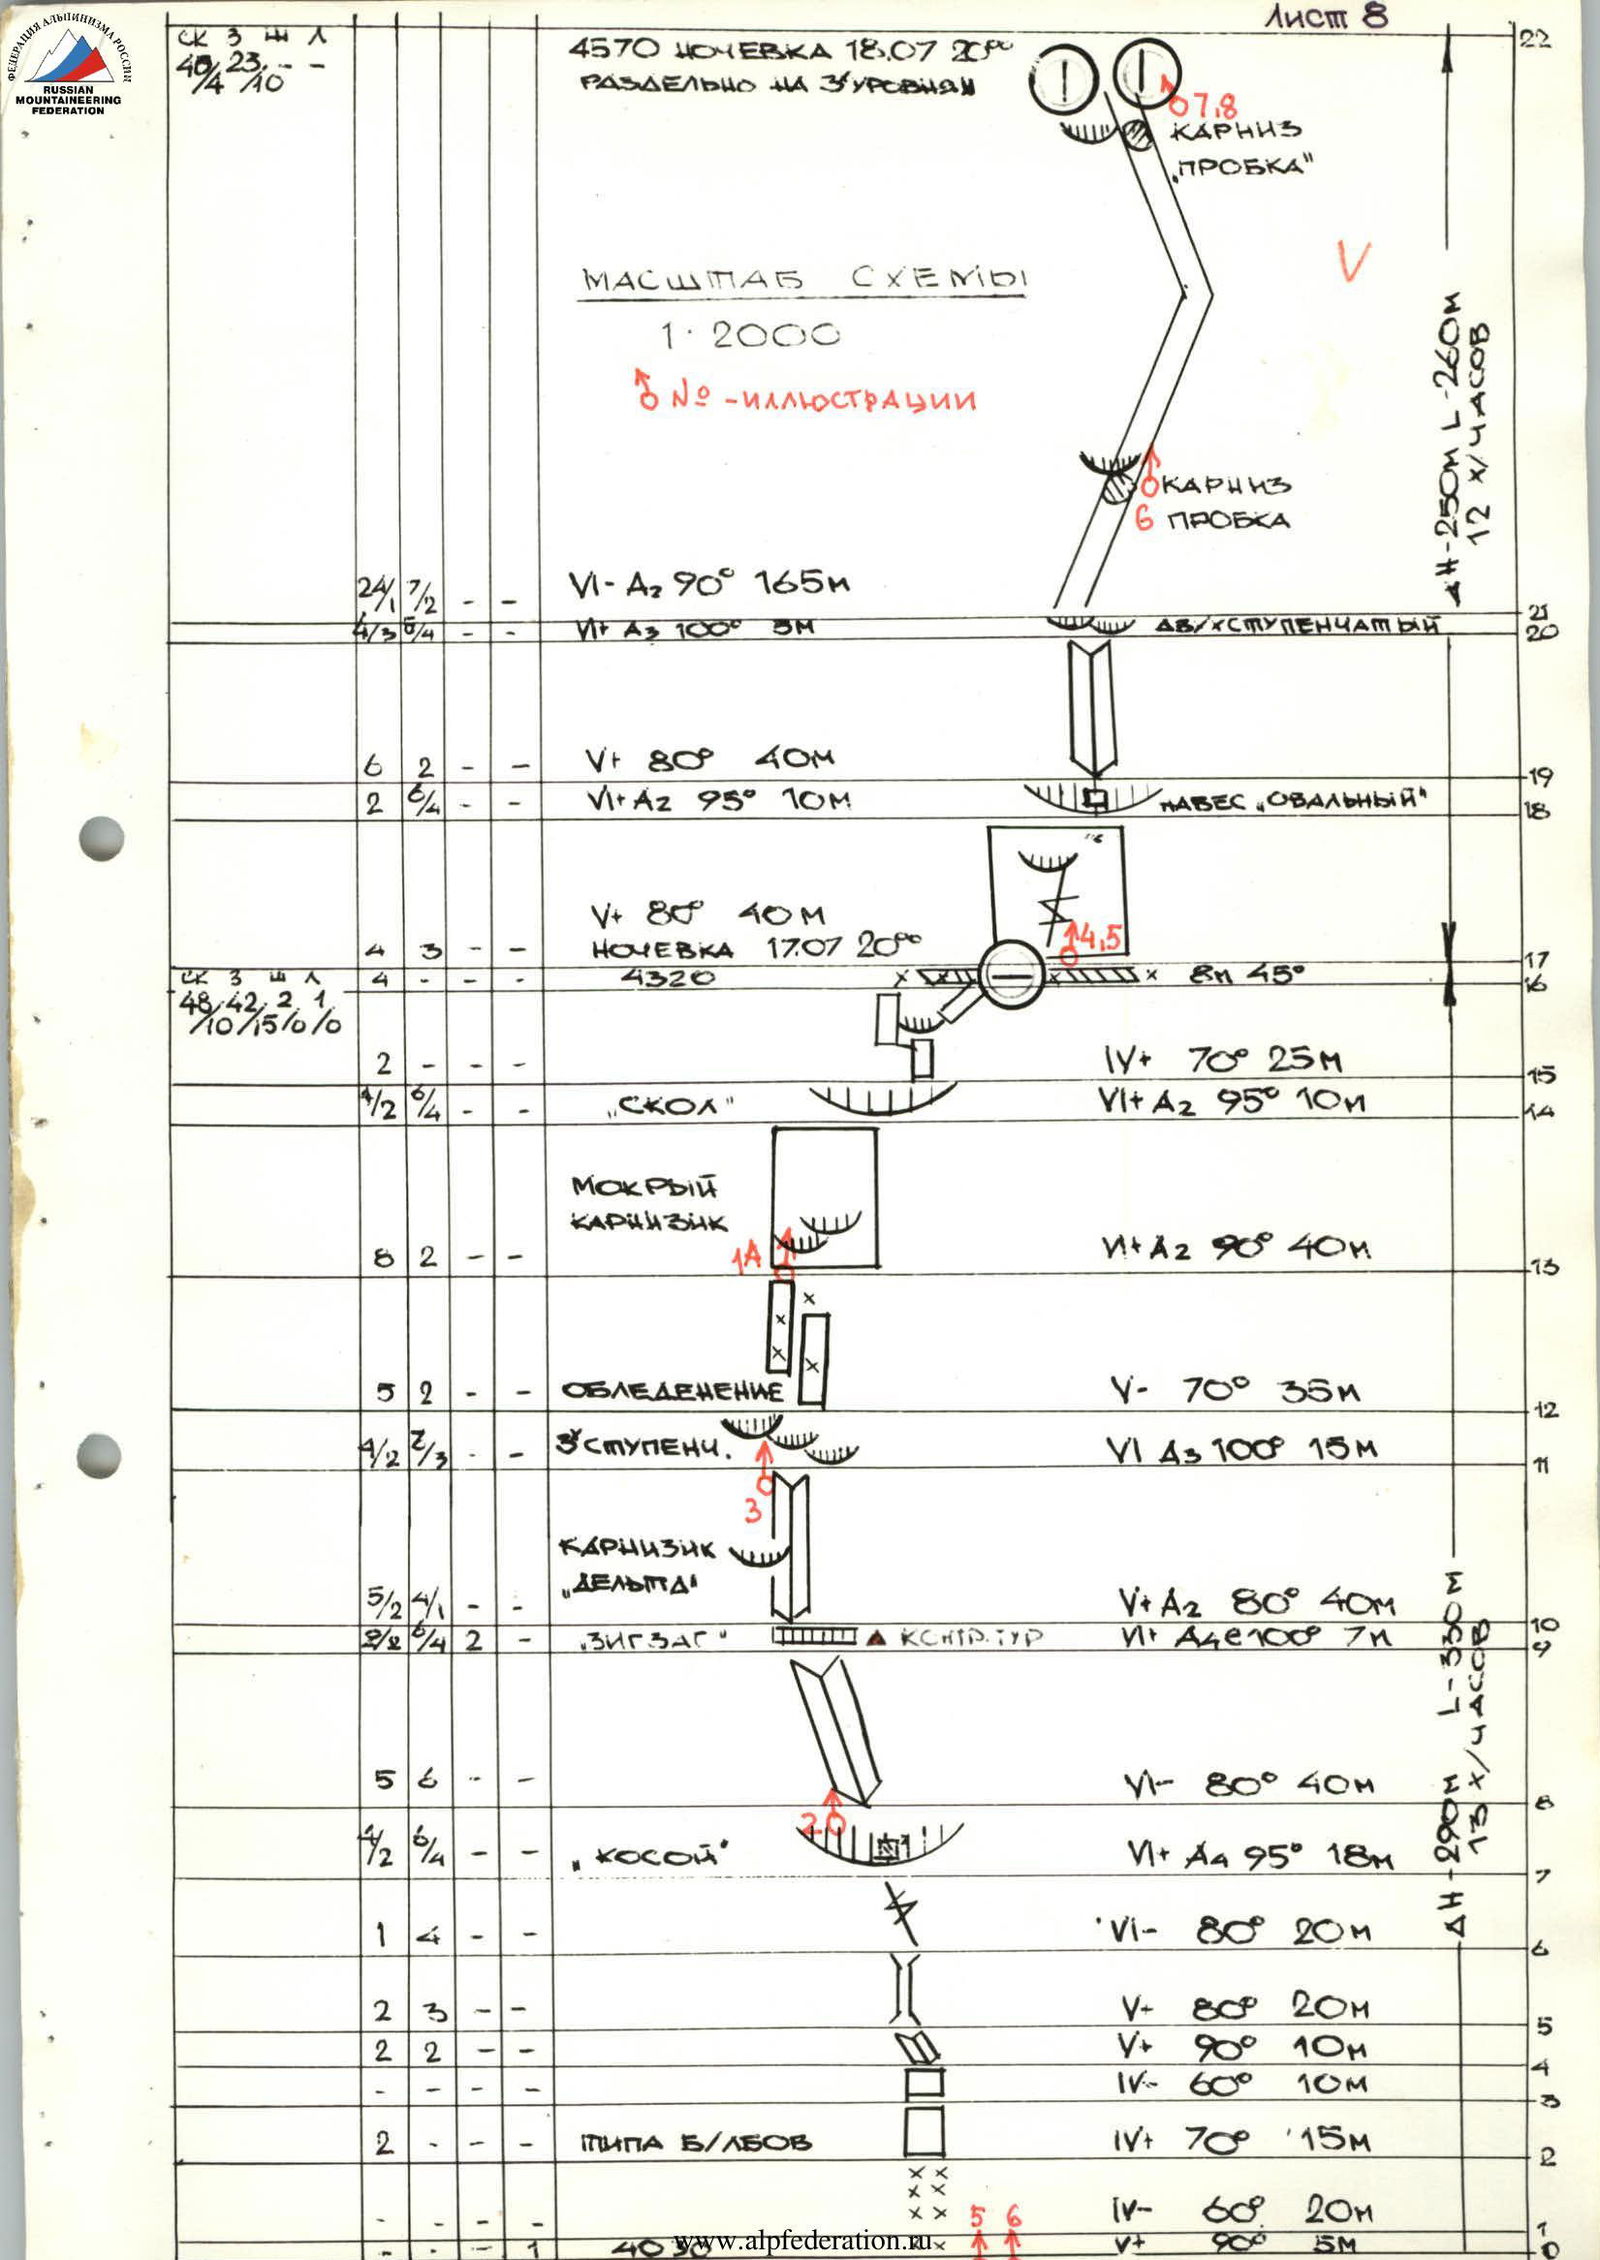 Лист 8
ФЕДЕРАЦИЯ АЛЬПИНИЗМА РОССИИ
RUSSIAN
MOUNTAINEERING
FEDERATION
СК З Ш Л
40/4 23/10 - -
4570 НОЧЕВКА 18.07 20⁰⁰
РАЗДЕЛЬНО НА 3Х УРОВНЯХ
22
7,8
КАРНИЗ
„ПРОБКА"
МАСШТАБ СХЕМЫ
1:2000
№ - ИЛЛЮСТРАЦИИ
V
ΔH-250М L-260М
12 Х/ЧАСОВ
КАРНИЗ
6 ПРОБКА
24/1 7/2 - - VI- A2 90° 165М
21
4/3 6/4 - - VI+ A3 100° 5М ДВ/ХСТУПЕНЧАТЫЙ 20
6 2 - - V+ 80° 40М 19
2 6/4 - - VI+ A2 95° 10М НАВЕС „ОВАЛЬНЫЙ" 18
V+ 80° 40М
4,5
4 3 - - НОЧЕВКА 17.07 20⁰⁰ 17
СК З Ш Л 4 - - - 4320 8М 45° 16
48/10 42/15 2/0 1/0
2 - - - IV+ 70° 25М 15
4/2 6/4 - - „СКОЛ" VI+ A2 95° 10М 14
МОКРЫЙ
КАРНИЗИК
1А
8 2 - - VI+ A2 90° 40М 13
5 2 - - ОБЛЕДЕНЕНИЕ V- 70° 35М 12
4/2 2/3 - - 3Х СТУПЕНЧ. VI A3 100° 15М 11
3
КАРНИЗИК
„ДЕЛЬТА"
5/2 4/1 - - V+ A2 80° 40М 10
2/2 6/4 2 - „ЗИГЗАГ" КОНТР.ТУР VI+ A4e 100° 7М 9
5 6 - - VI- 80° 40М 8
2
4/2 6/4 - - „КОСОЙ" VI+ A4 95° 18М 7
ΔH-290М L-330М
13 Х/ЧАСОВ
1 4 - - VI- 80° 20М 6
2 3 - - V+ 80° 20М 5
2 2 - - V+ 90° 10М 4
- - - - IV- 60° 10М 3
2 - - - ТИПА Б/ЛБОВ IV+ 70° 15М 2
- - - - 5 6 IV- 60° 20М 1
- - - 1 4030 V+ 90° 5М 0
www.alpfederation.ru